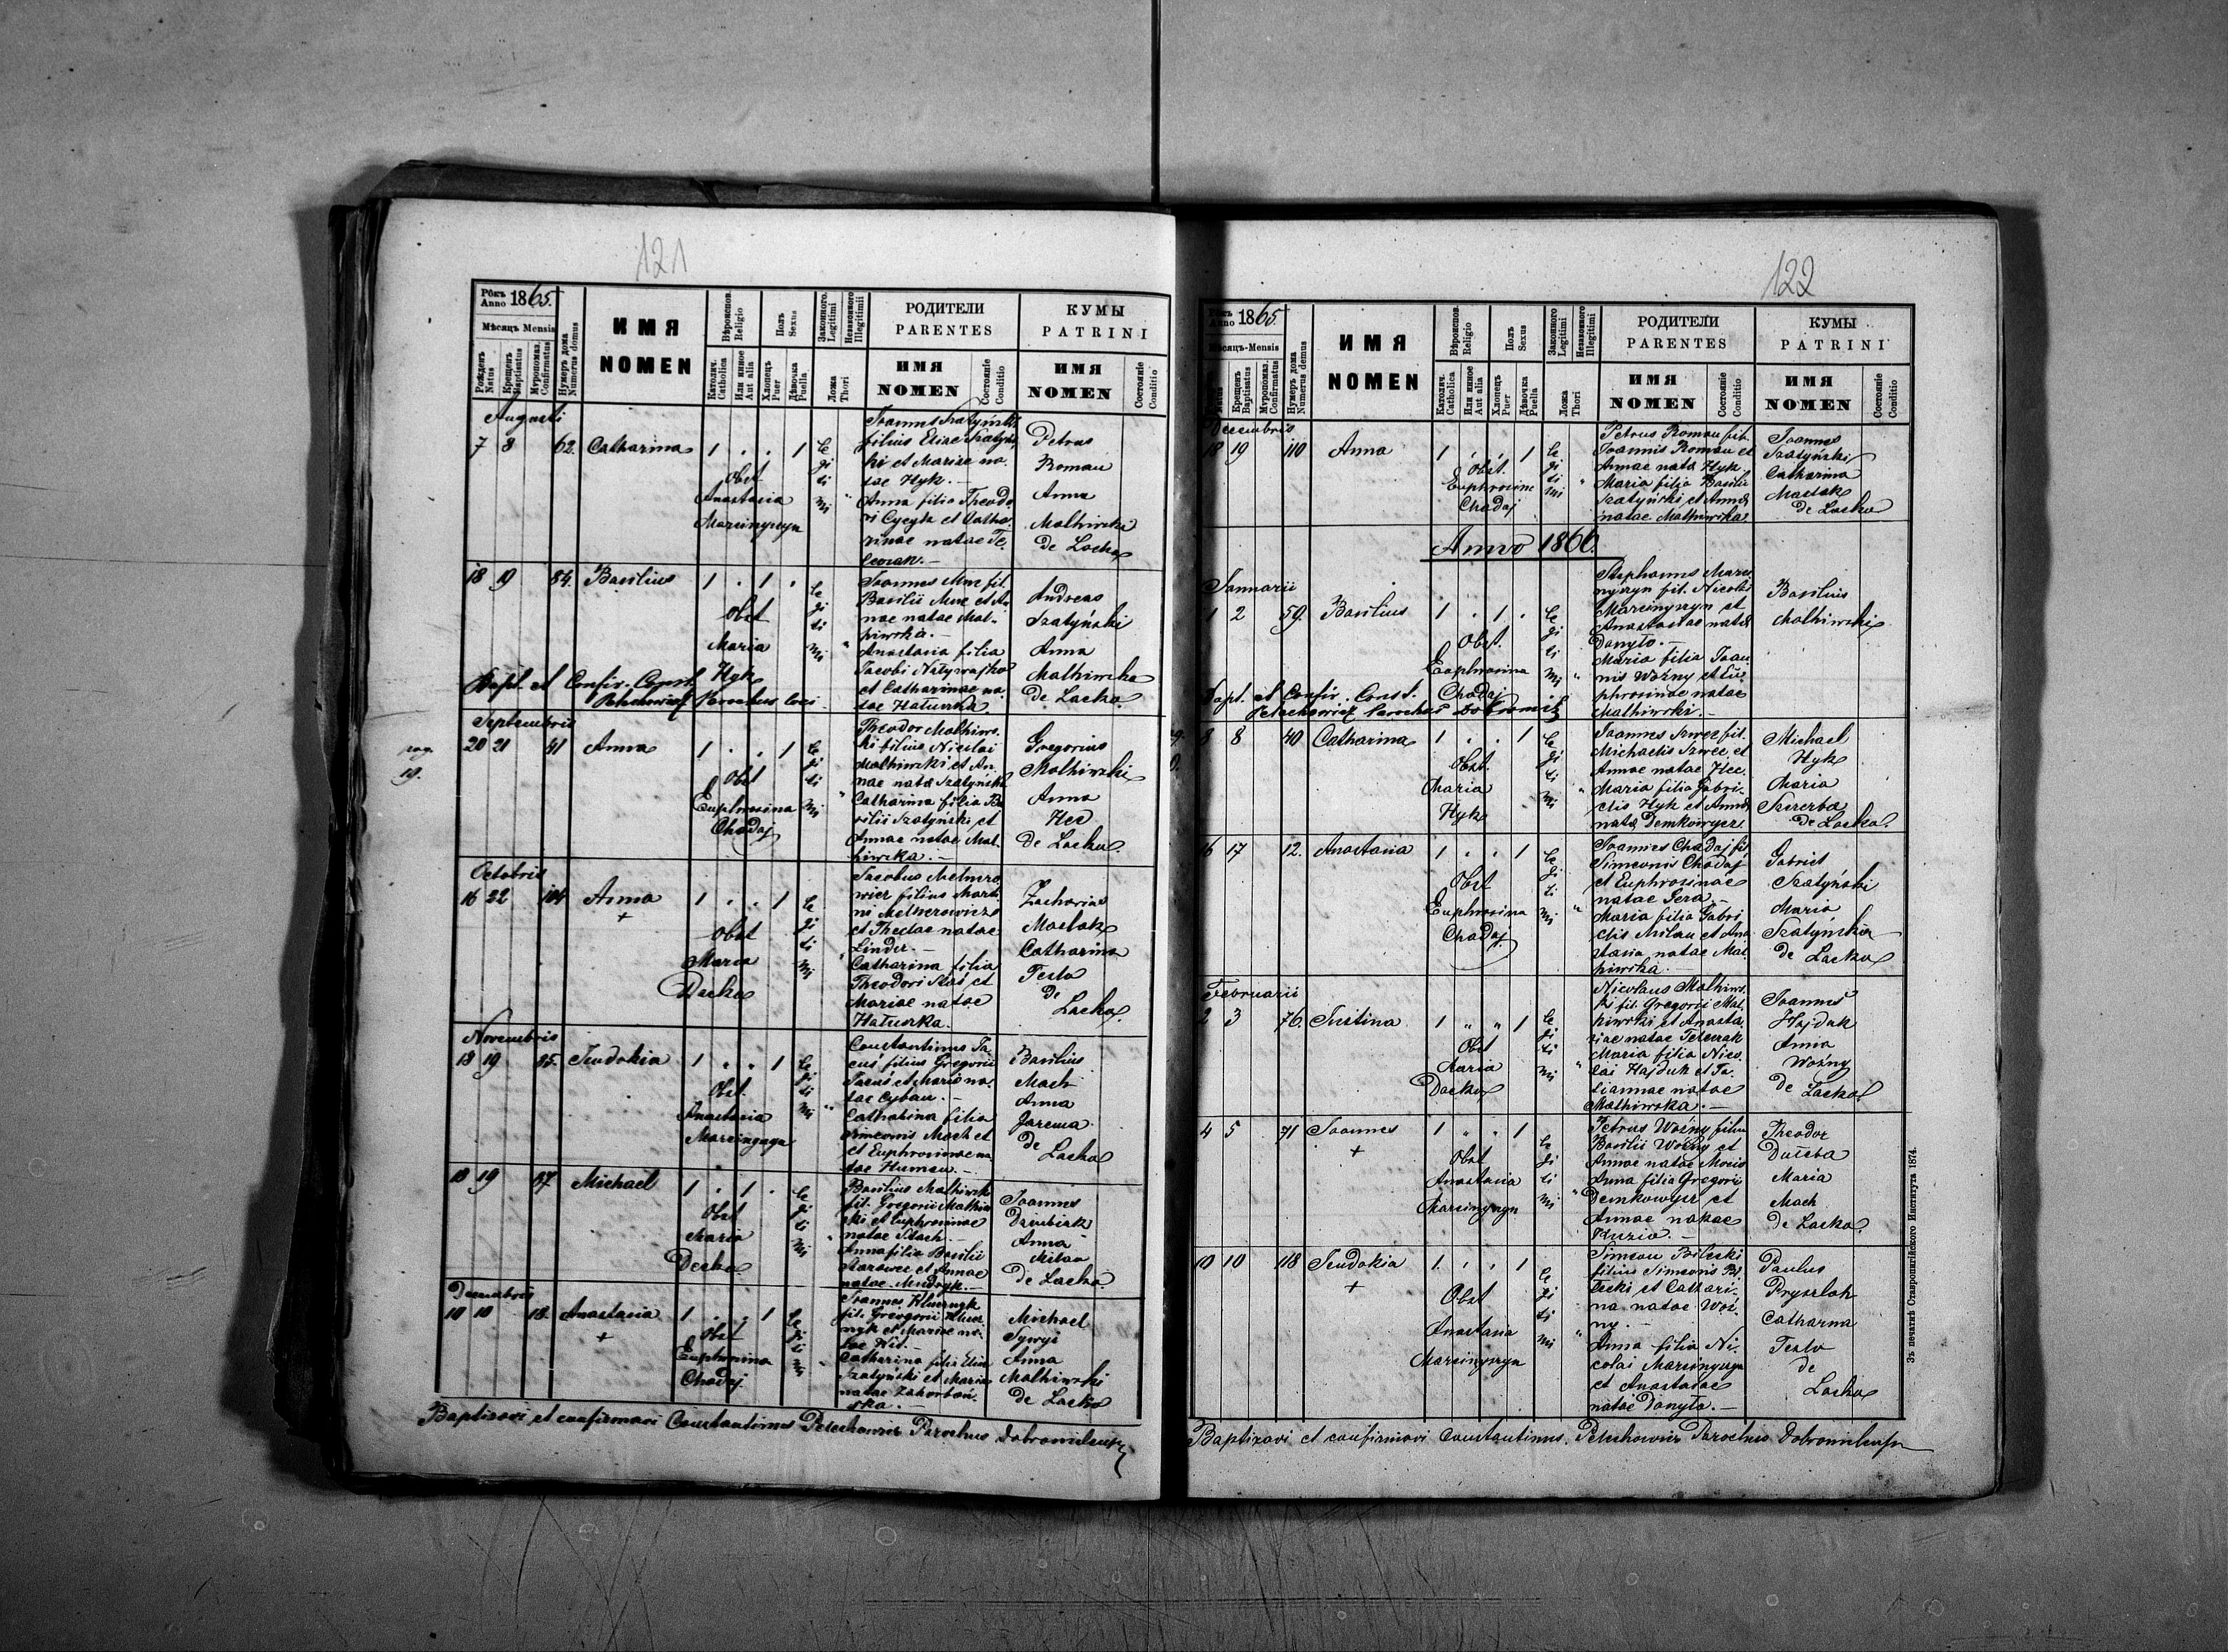 121
Рôкъ Anno 1865.
Мѣсяцъ Mensis
Рожденъ Natus
Крещенъ Baptisatus
Муропомаз. Confirmatus
Нумеръ дома Numerus domus
ИМЯ
NOMEN
Вѣроисповѣд. Religio
Католич. Catholica
Или инное Aut alia
Полъ Sexus
Хлопецъ Puer
Дѣвочка Puella
Законного. Legitimi
Незаконного Illegitimi
Ложа Thori
РОДИТЕЛИ
PARENTES
ИМЯ
NOMEN
Состоянiе Conditio
КУМЫ
PATRINI
ИМЯ
NOMEN
Состоянiе Conditio
Augusti
7 8 62. Catharina 1 . . 1 legitimi
Obst
Anastasia
Marcinyszyn
Joannes Szatyński
filius Eliae Szatyńs
ki et Mariae na
tae Hyk. —
Anna filia Theodo
ri Cycyk et Catha
rinae natae Te
leszak. —
Petrus
Roman
Anna
Malhiwska
de Lacko
18 19 84. Basilius 1 . 1 . legitimi
Obst
Maria
Hyk
Joannes Muc fil.
Basilii Muc et An
nae natae Mal-
hiwska. —
Anastasia filia
Jacobi Natywajko
et Catharinae na
tae Hatuszka
Andreas
Szatyński
Anna
Malhiwska
de Lacko.
Bapt. et Confir. Const.
Petechowicz Parochus loci
Septembris
pag.
19.
20 21 41 Anna 1 . . 1 legitimi
Obst
Euphrosina
Chadaj
Theodor Malhiws
ki filius Nicolai
Malhiwski et An
nae nata Szatyńska
Catharina filia Ba
silii Szatyński et
Annae natae Mal
hiwska. —
Gregorius
Malhiwski
Anna
Hec
de Lacko.
Octobris
16 22 104 Anna 1 . . 1 legitimi
+
Obst
Maria
Decko
Jacobus Melnero
wicz filius Marti
ni Melnerowicz
et Theclae natae
Linder. —
Catharina filia
Theodori Stas et
Mariae natae
Hatuszka.
Zacharias
Maslak
Catharina
Testo
de
Lacko.
Novembris
18 19 95. Eudokia 1 . . 1 legitimi
Obst.
Anastasia
Marcinyszyn
Constantinus Ta
cus filius Gregorii
Tacus et Maria na
tae Cyban. —
Catharina filia
Simeonis Mach et
et Euphrosinae na
tae Human. —
Basilius
Mach
Anna
Jarema
de
Lacko
18 19 87 Michael 1 . 1 . legitimi
Obst
Maria
Decko
Basilius Malhiwsk
fil. Gregorii Malhiw
ski et Euphrosinae
natae Stach. —
Anna filia Basilii
Starowec et Annae
natae Mudryk. —
Joannes
Dziubiak
Anna
Milan
de Lacko
Decembris
10 10 18. Anastasia 1 . . 1 legitimi
+
Obst
Euphrosina
Chadaj
Joannes Kluczyk
fil. Gregorii Klucz
nyk et Mariae na
tae Kit. —
Catharina filia Eliae
Szatyński et Maria
natae Zahorbań
ska. —
Michael
Syryj
Anna
Malhiwski
de Lacko
Baptizavi et confirmavi Constantinus Petechowicz Parochus Dobromilensis
122
Рôкъ Anno 1865.
Мѣсяцъ-Mensis
Natus
Крещенъ Baptisatus
Муропомаз. Confirmatus
Нумеръ дома Numerus domus
ИМЯ
NOMEN
Вѣроисповѣд. Religio
Католич. Catholica
Или инное Aut alia
Полъ Sexus
Хлопецъ Puer
Дѣвочка Puella
Законного Legitimi
Незаконного Illegitimi
Ложа Thori
РОДИТЕЛИ
PARENTES
ИМЯ
NOMEN
Состоянiе Conditio
КУМЫ
PATRINI
ИМЯ
NOMEN
Состоянiе Conditio
Decembris
18 19 110 Anna 1 . . 1 legitimi
Obst.
Euphrosine
Chadaj
Petrus Roman fil.
Joannis Roman et
Annae nata Hyk
Maria filia Basilii
Szatyński et Annae
natae Malhiwska
Joannes
Szatyński
Catharina
Maslak
de Lacko
Anno 1866.
Januarii
1 2 59. Basilius 1 . 1 . legitimi
Obst.
Euphrosina
Chadaj
Stephanus Marci
nyszyn fil. Nicolai
Marcinyszyn et
Anastasiae nata
Danyło. —
Maria filia Joan
nis Woźny et Eu
phrosinae natae
Malhiwski. —
Basilius
Malhiwski
Bapt. et Confir. Const.
Petechowicz Parochus Dobromil
8 8 40 Catharina 1 . . 1 legitimi
Obst.
Maria
Hyk
Joannes Szwec fil.
Michaelis Szwec et
Annae natae Hec.
Maria filia Gabri
elis Hyk et Annae
nata Demkowycz
Michael
Hyk
Maria
Szczerba
de Lacko.
16 17 12. Anastasia 1 . . 1 legitimi
Obst
Euphrosina
Chadaj
Joannes Chadaj fil
Simeonis Chadaj
et Euphrosinae
natae Gera. —
Maria filia Gabri
elis Milan et Ana
stasia natae Mal
hiwska. —
Gabriel
Szatyński
Maria
Szatyńska
de Lacko
Februarii
2 3 76. Justina 1 " " 1 legitimi
Obst
Maria
Dacko
Nicolaus Malhiws
ki fil. Gregorii Mal
hiwski et Anasta
siae natae Teleszak
Maria filia Nico
lai Hajduk et Ta
tiannae natae
Malhiwska. —
Joannes
Hajduk
Anna
Woźny
de Lacko
4 5 71 Joannes 1 " . 1 legitimi
+
Obst
Anastasia
Marcinyszyn
Petrus Woźny filius
Basilii Woźny et
Annae natae Mocio
Anna filia Gregorii
Demkowycz et
Annae natae
Kuzio. —
Theodor
Dulęba
Maria
Mach
de Lacko
10 10 118 Eudokia 1 . . 1 legitimi
+
Obst
Anastasia
Marcinyszyn
Simeon Bilecki
filius Simeonis Bi
lecki et Cathari
na natae Woź
ny. —
Anna filia Ni
colai Marcinyszyn
et Anastasiae
natae Danyło. —
Paulus
Pryszlak
Catharina
Testo
de
Lacko
Baptizavi et confirmavi Constantinus Petechowicz Parochus Dobromilensis
Зъ печатнѣ Ставропигiйского Института 1874.